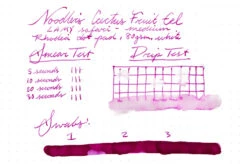 Noodler's Cactus Fruit Eel
LAMY safari - medium
Rhodia dot pad, 80gsm white
Smear Test Drip Test
5 seconds
10 seconds
20 seconds
30 seconds
Swabs:
1 2 3